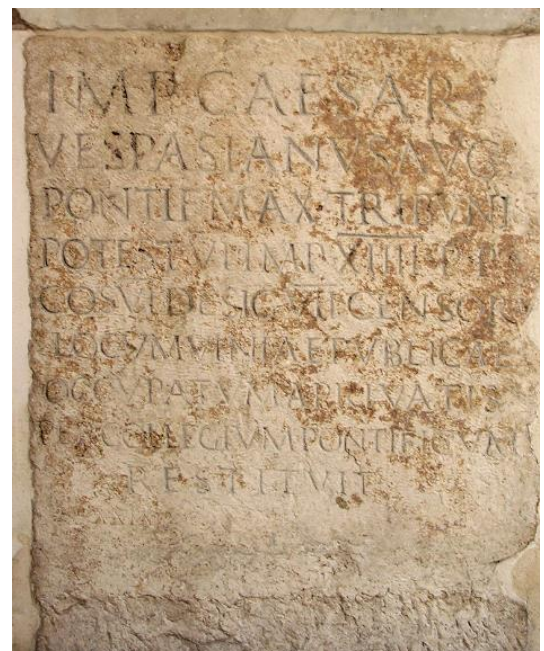 IMP CAESAR
VESPASIANVS AVG
PONTIF MAX TRIBVNIC
POTEST VI IMP XIIII P P
COS VI DESIG VII CENSOR
LOCVM VINIAE PVBLICAE
OCCVPATVM A PRIVATIS
PER COLLEGIVM PONTIFICVM
RESTITVIT